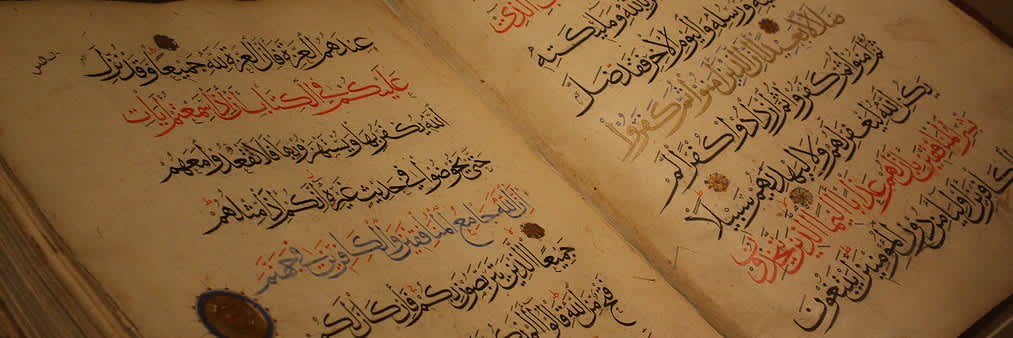 الذي
بالله وملئكته
وكتبه ورسله واليوم الاخر فقد ضل
ضلالا بعيدا ان الذين امنوا ثم كفروا
ثم امنوا ثم كفروا ثم ازدادوا كفرا لم
يكن الله ليغفر لهم ولا ليهديهم سبيلا
بشر المنافقين بان لهم عذابا اليما الذين يتخذون
الكافرين اولياء من دون المؤمنين ايبتغون
عندهم العزة فان العزة لله جميعا وقد نزل
عليكم في الكتاب ان اذا سمعتم ايات
الله يكفر بها ويستهزا بها فلا تقعدوا معهم
حتى يخوضوا في حديث غيره انكم اذا مثلهم
ان الله جامع المنافقين والكافرين في جهنم
جميعا الذين يتربصون بكم فان كان لكم
فتح من الله قالوا الم نكن